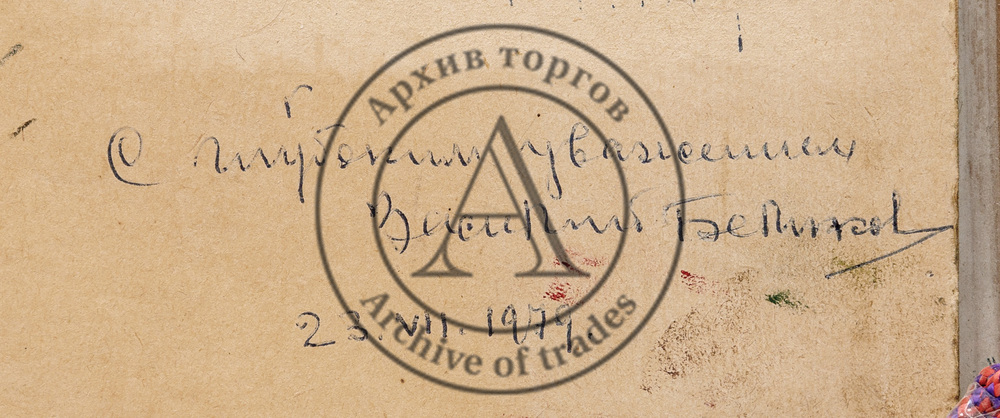 С глубоким уважением
Василий Беликов
23. VII. 1979
Архив торгов
Archive of trades